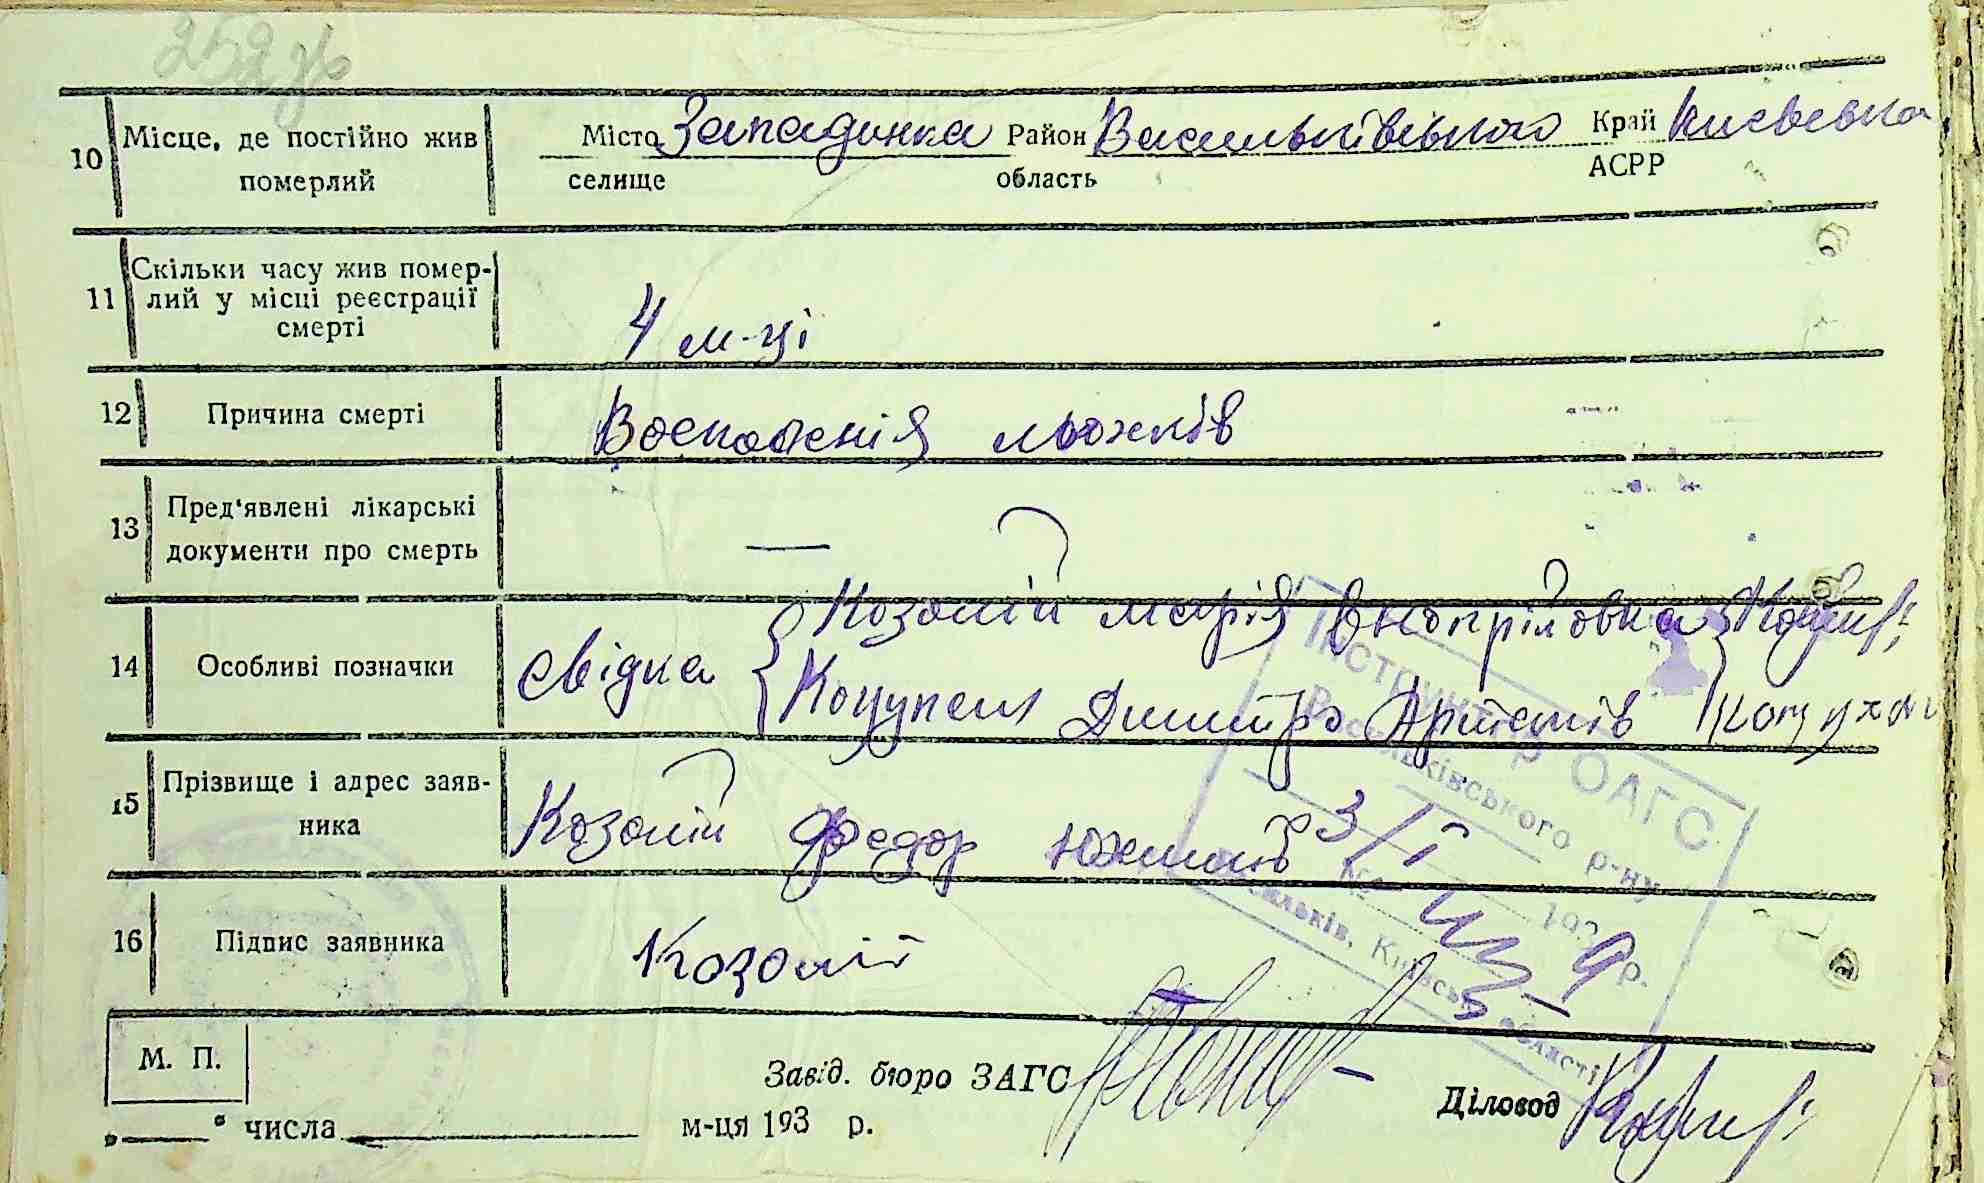 252 зв
10 Місце, де постійно жив померлий Місто селище Западинка Район область Васильківського Край АСРР Києвська
11 Скільки часу жив помер-
лий у місці реєстрації
смерті 4 м-ці
12 Причина смерті Восполенія льожків
13 Пред'явлені лікарські
документи про смерть —
14 Особливі позначки свідка Козолій Марія
Коцупал Дмитро Артемів
15 Прізвище і адрес заяв-
ника Козолій Федор
16 Підпис заявника Козолій
Інструктор ОАГС
Васильківського р-ну
193 р.
м. Васильків, Київської області
М. П.
Завід. бюро ЗАГС
Діловод
„ " числа м-ця 193 р.